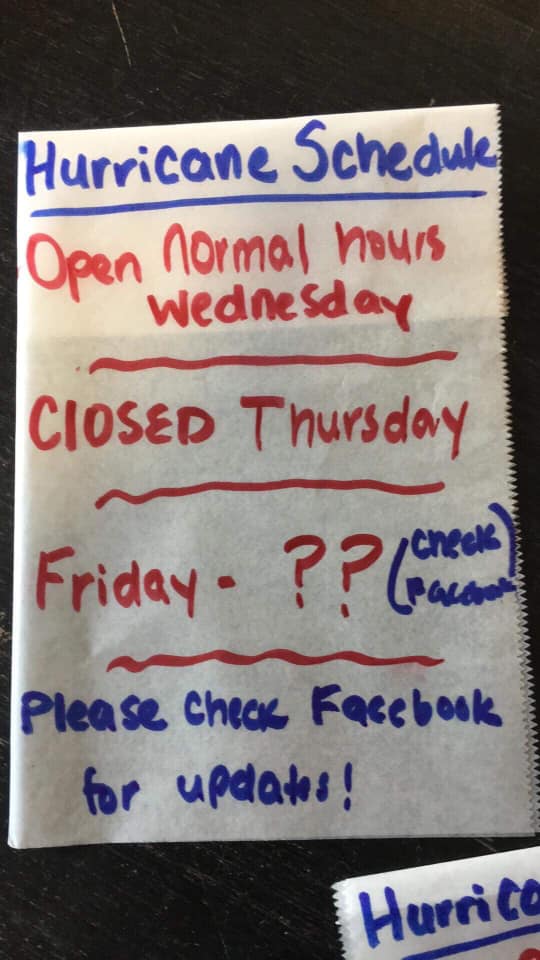 Hurricane Schedule
Open normal hours
Wednesday
ClOSED Thursday
Friday - ?? (Check
Facebook)
Please Check Facebook
for updates!
Hurrica